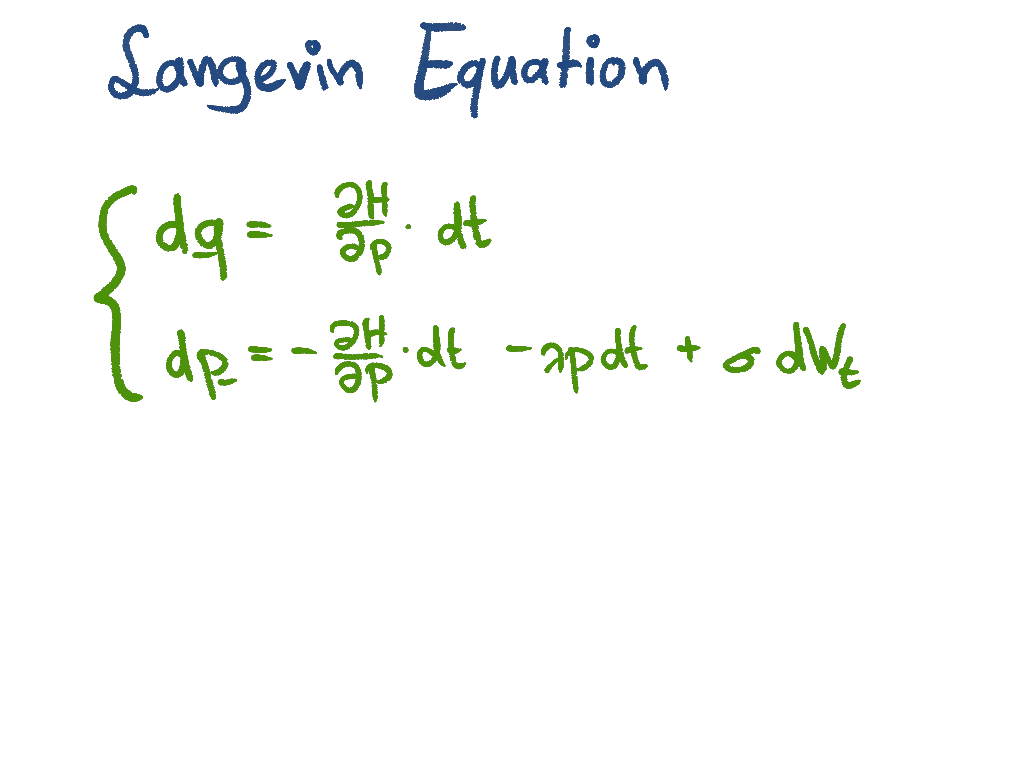 Langevin Equation
dq = ∂H/∂p · dt
dp = - ∂H/∂p · dt - λp dt + σ dWₜ